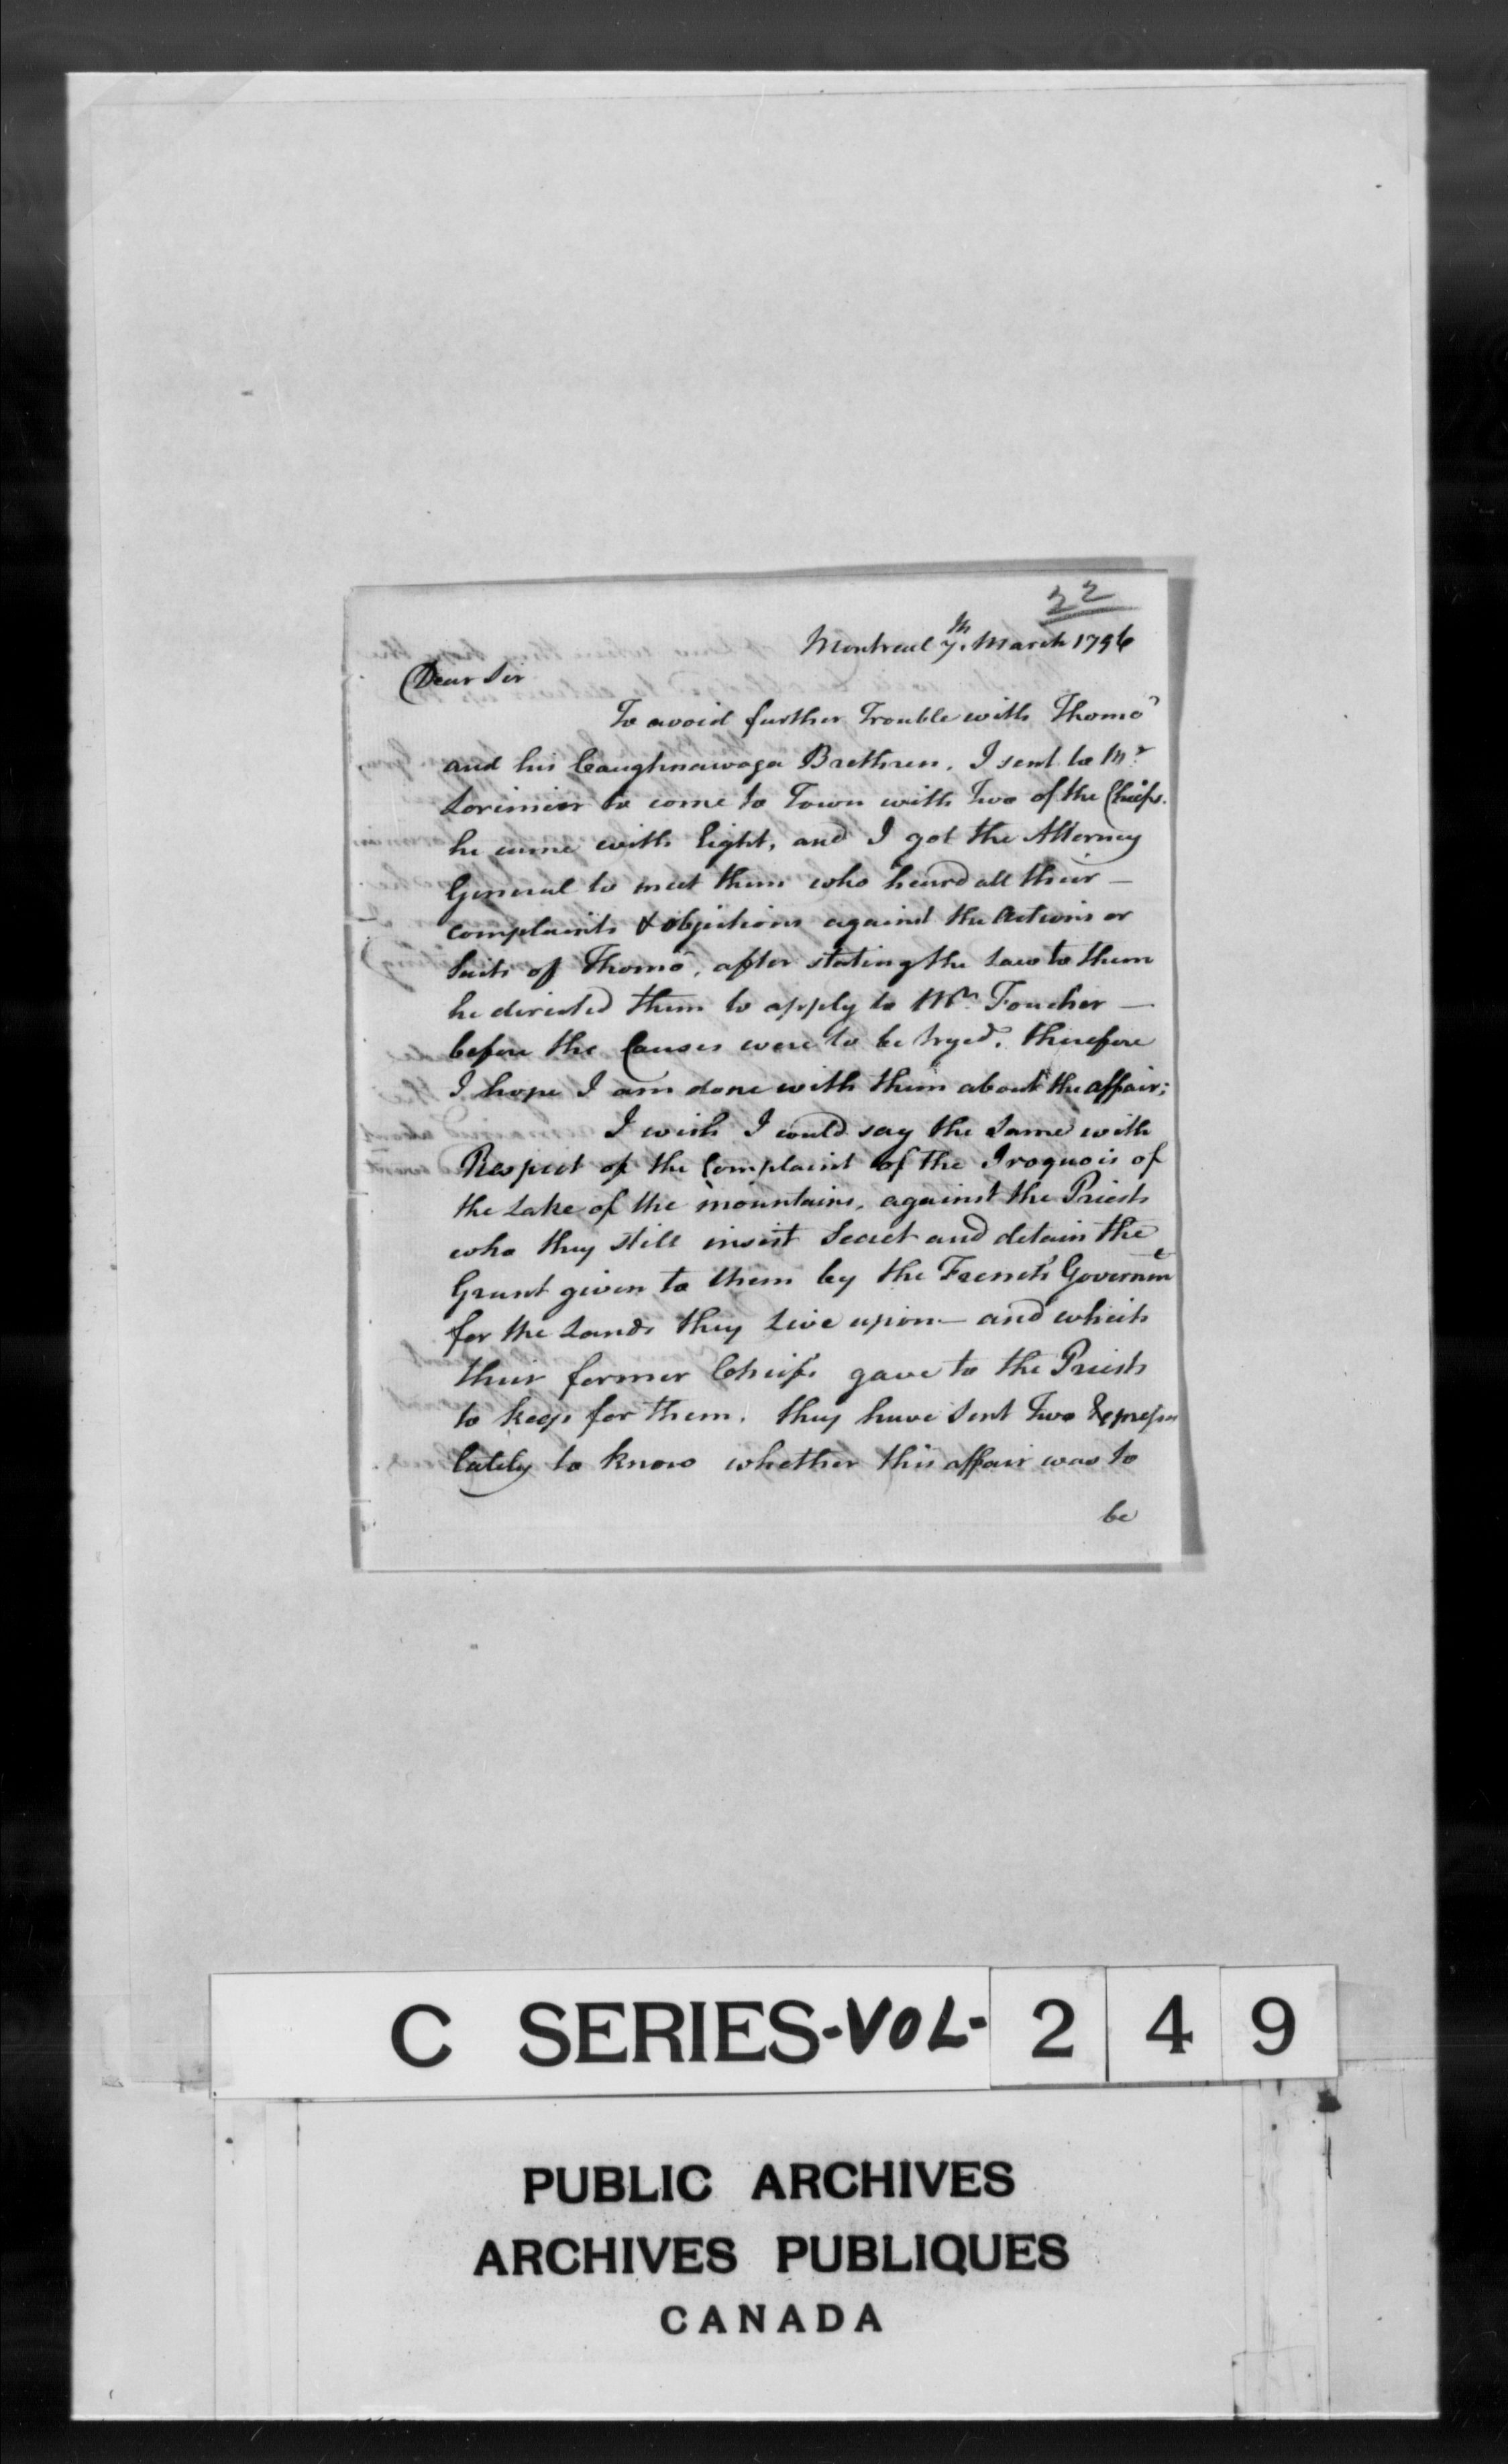 22
Montreal 7th. March 1796
Dear Sir
To avoid further Trouble with Thomo
and his Caughnawaga Brethren, I sent to Mr
Lorimier to come to Town with Two of the Chiefs.
he came with Eight, and I got the Attorney
General to meet them who heard all their —
complaints & objections against the Actions or
Suits of Thomo, after stating the Law to them
he directed them to apply to Mr. Foucher —
before the Causes were to be tryed. therefore
I hope I am done with them about the affair;
I wish I could say the same with
Respect of the Complaint of the Iroquois of
the Lake of the mountains, against the Priests
who they still insist Secret and detain the
Grant given to them by the French Governmt
for the Lands they Live upon — and which
their former Chiefs gave to the Priests
to keep for them. they have sent Two Expresses
lately to know whether this affair was to
be
C SERIES-VOL-249
PUBLIC ARCHIVES
ARCHIVES PUBLIQUES
CANADA